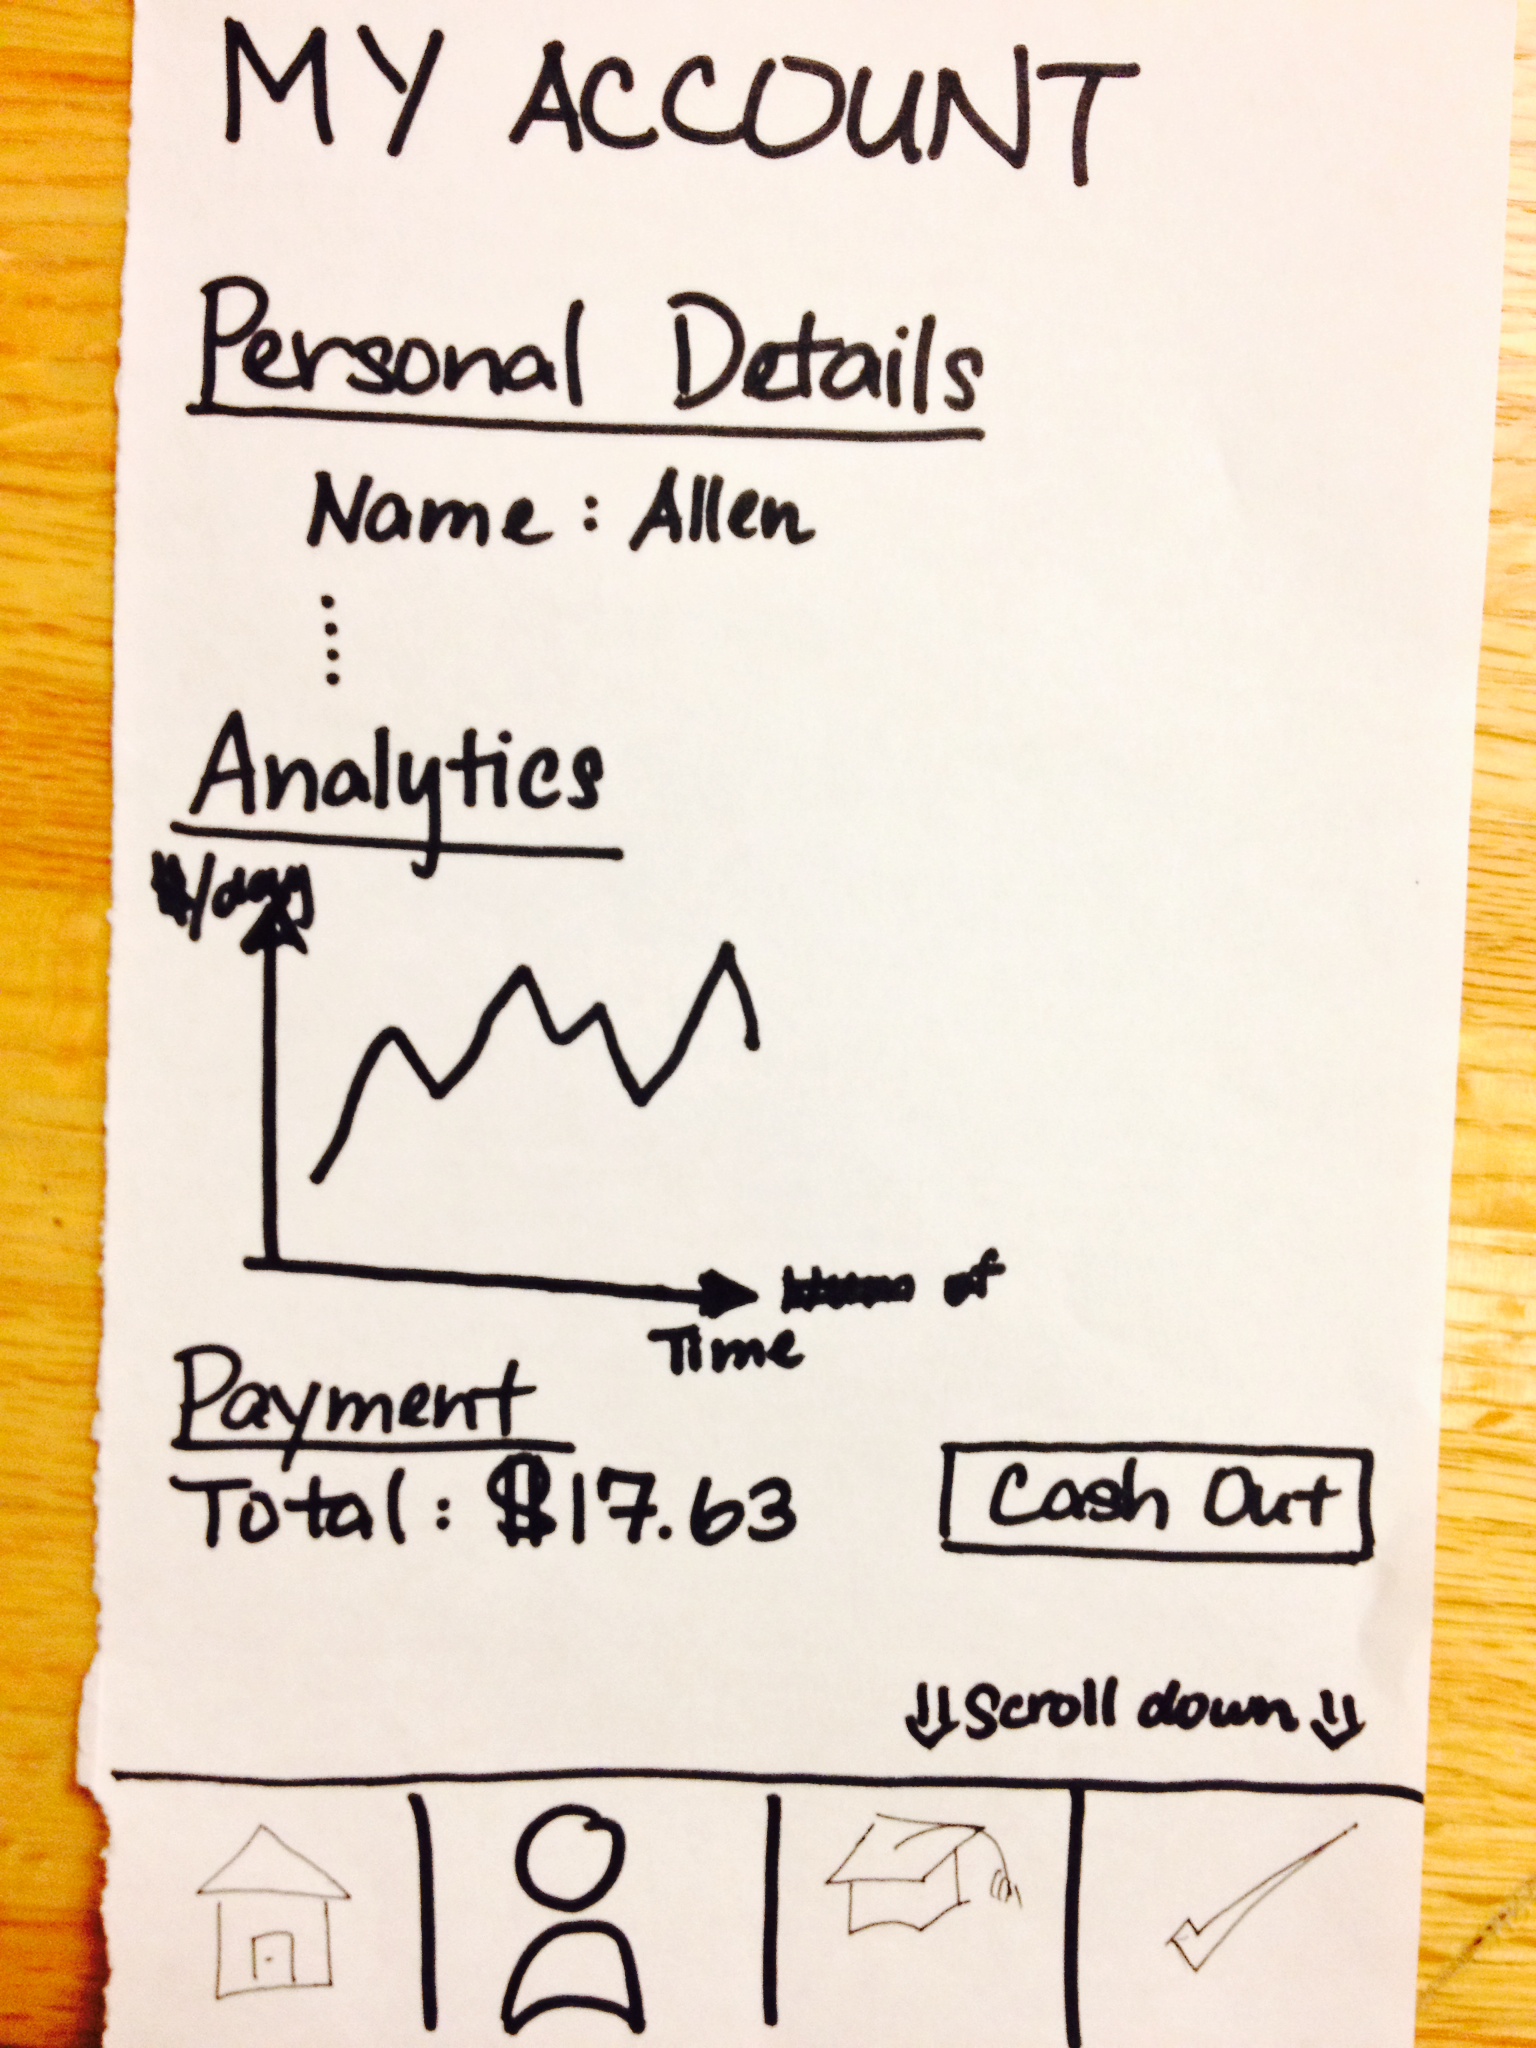 MY ACCOUNT
Personal Details
Name: Allen
Analytics
$/day
of
Time
Payment
Total: $17.63
Cash Out
Scroll down